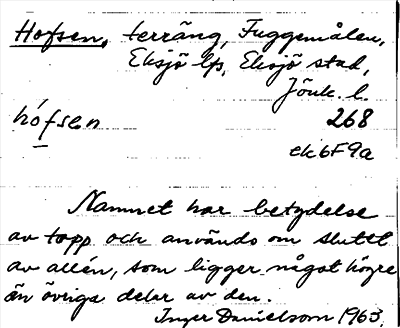 Hofsen, terräng, Fuggemålen,
Eksjö lfs, Eksjö stad,
Jönk. l.
hófsen 268
ek6F9a
Namnet har betydelse
av topp och används om slutet
av allén, som ligger något högre
än övriga delar av den.
Inger Danielsson 1963.